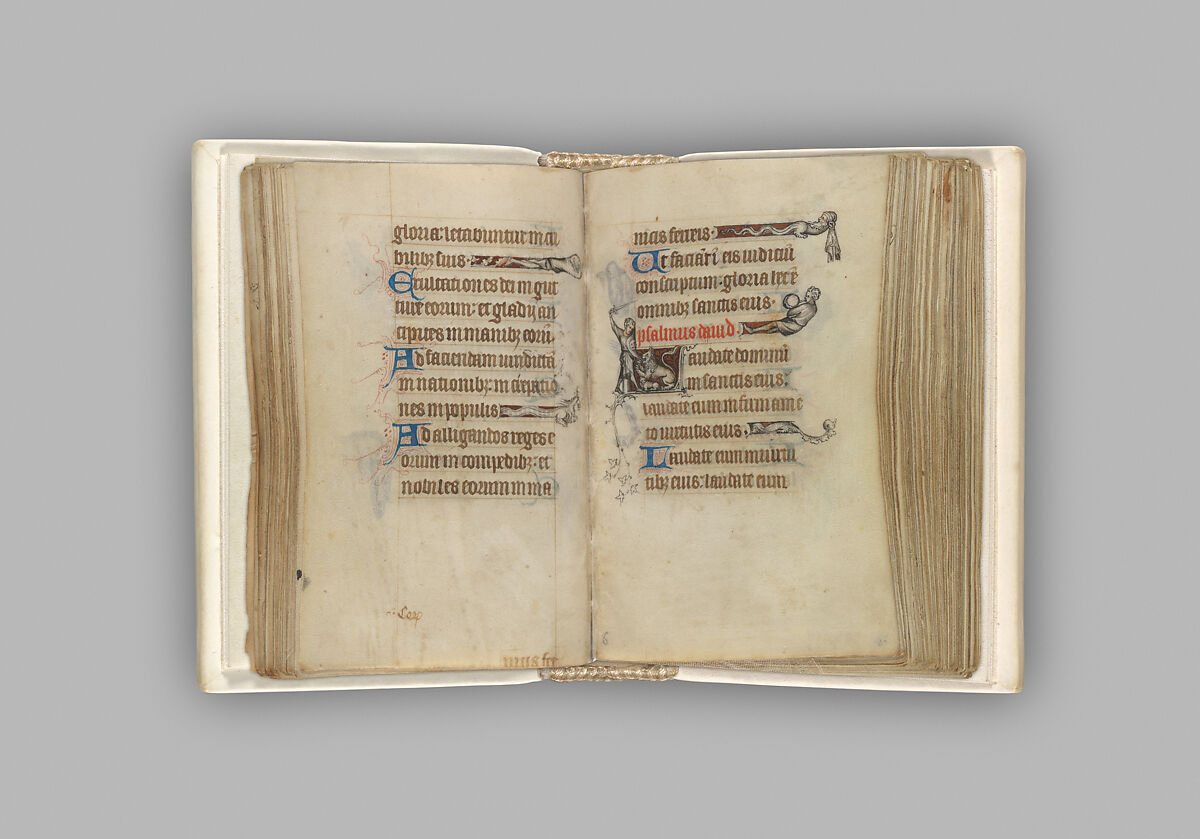 gloria: letabuntur in cu
bilibꝫ suis.
Exultationes dei in gut
ture eorum: et gladij an
cipites in manibꝫ eoꝝ.
Ad faciendam uindictā
in nationibꝫ: increpatio
nes in populis
Ad alligandos reges e
orum in compedibꝫ: et
nobiles eorum in ma
nicis ferreis.
Ut faciāt i eis iudiciū
conscriptum: gloria hec ē
omnibꝫ sanctis eius.
psalmus dauid.
Laudate dominū
in sanctis eius:
laudate eum in firmame
to uirtutis eius.
Laudate eum in uirtu
tibꝫ eius: laudate eum
6